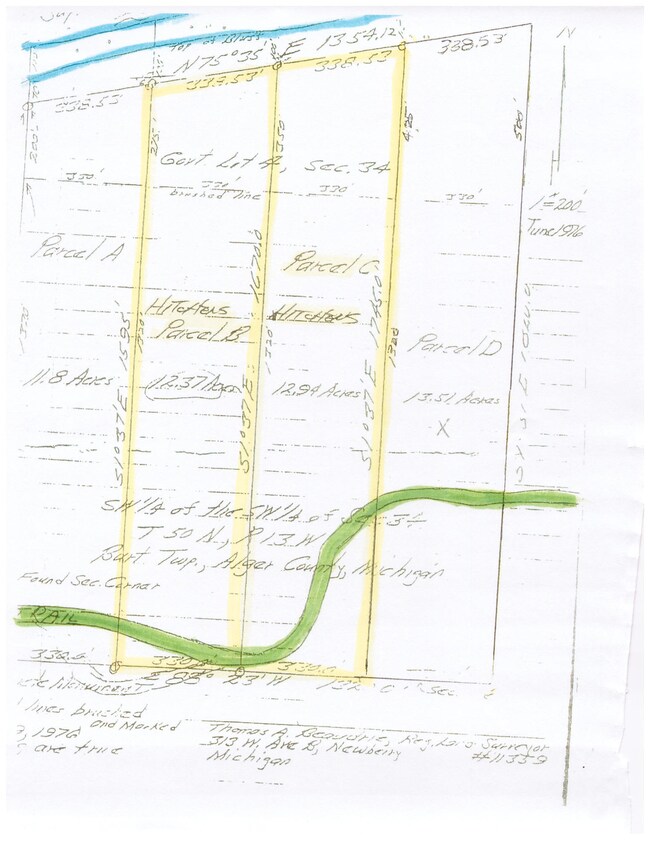 N 75° 35' E 1354.12'
338.53'
338.53'
338.53'
N
200'
275'
350'
425'
500'
Gov't Lot 4, Sec. 34
330'
330'
330'
330'
brushed line
1"=200'
June 1976
Parcel A
Parcel C
HITCHENS
HITCHENS
Parcel B
Parcel D
11.8 Acres
12.37 Acres
12.94 Acres
13.51 Acres
X
S1°37'E 1595'
1320'
S1°37'E 1670.0
1320
S1°37'E 1745.0
1320
SW 1/4 of the SW 1/4 of Sec. 34
T 50 N., R 13 W
Burt Twp., Alger County, Michigan
Found Sec. Corner
330.0'
330.0'
Monument
lines brushed
and Marked
1976
are true
Thomas A. Beaudrie, Reg. Land Surveyor
313 W. Ave B, Newberry
#11359
Michigan